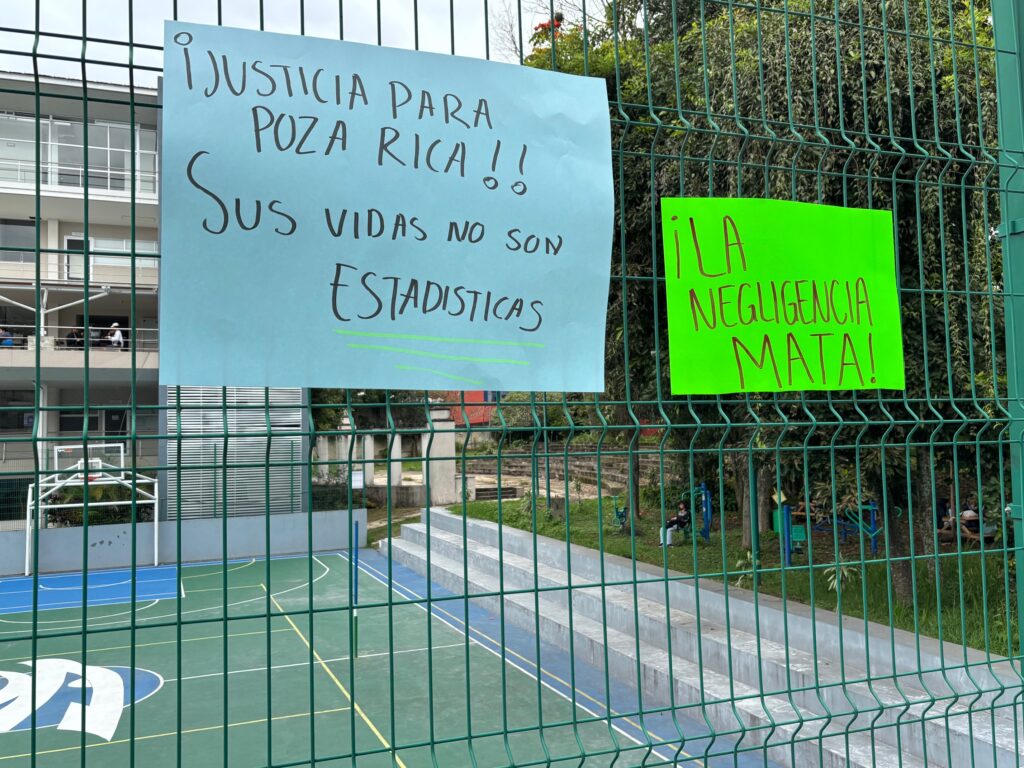 ¡JUSTICIA PARA
POZA RICA!!
SUS VIDAS NO SON
ESTADISTICAS
¡LA
NEGLIGENCIA
MATA!